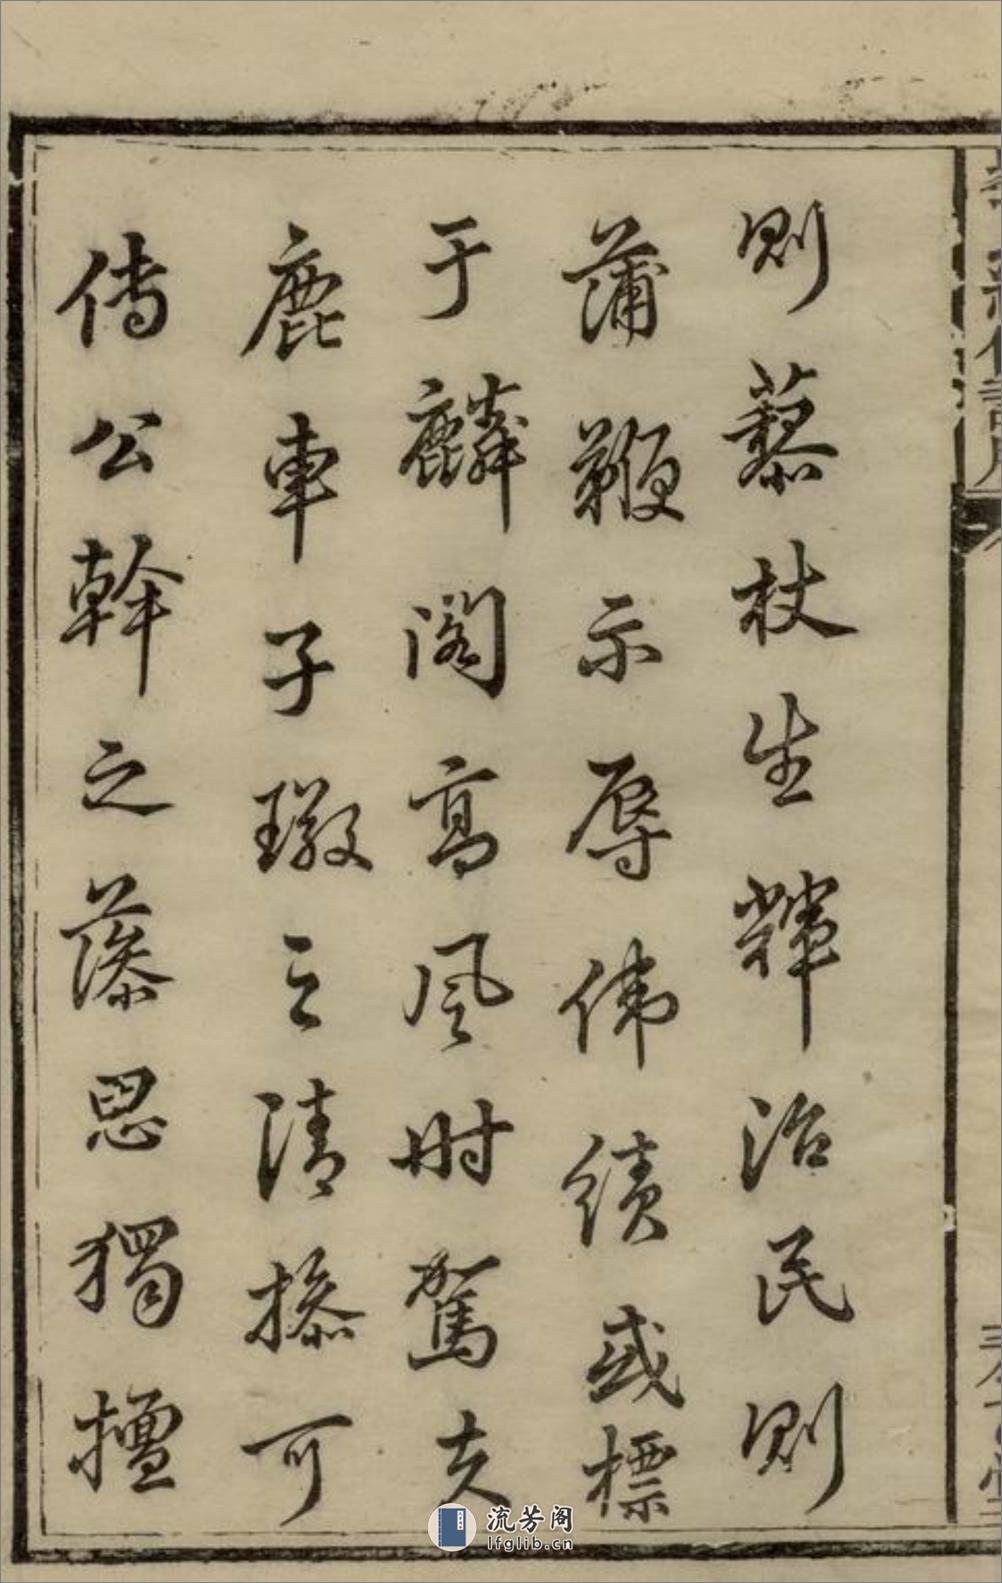 則藜杖生輝治民則
蒲鞭示辱偉績或標
于麟閣高風时駕夫
鹿車子璈之清操可
傳公幹之藻思獨擅
流芳阁
lfglib.cn